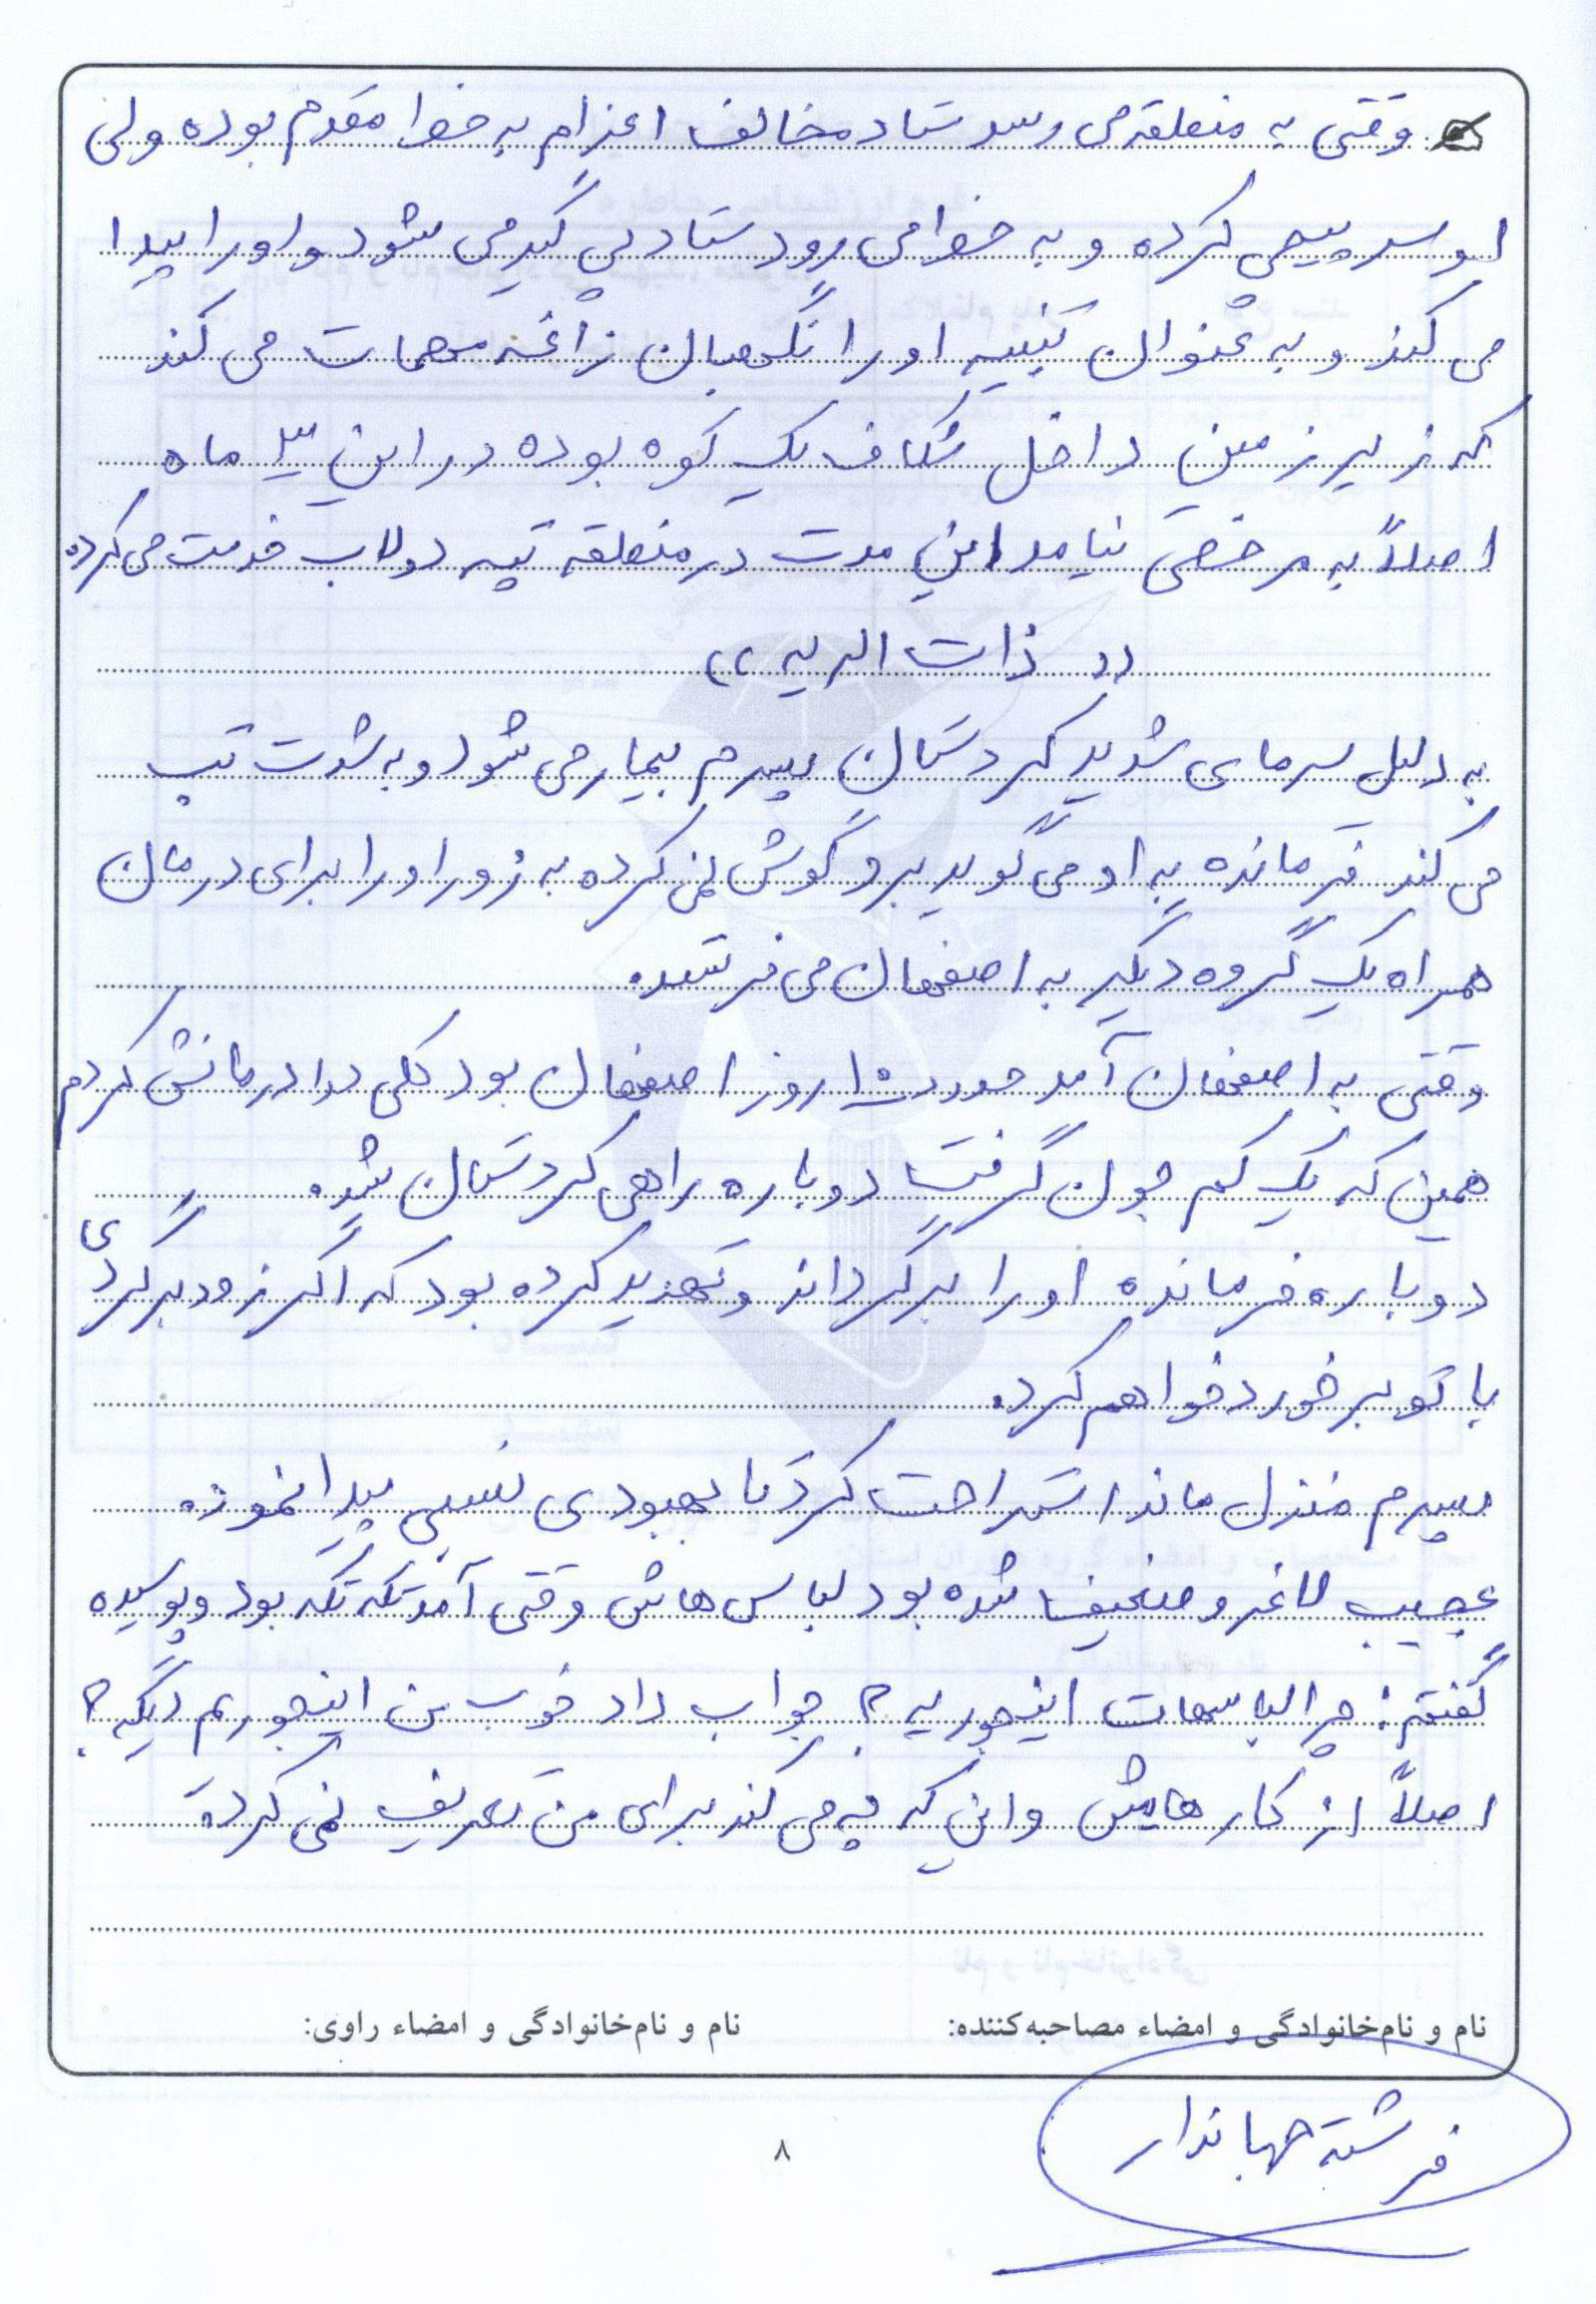 وقتی به منطقه می رسد ستاد مخالف اعزام به خط مقدم بوده ولی
او سرپیچی کرده و به خط می رود ستاد پی گیر می شود و او را پیدا
می کند و به عنوان تنبیه او را نگهبان زاغه مهمات می کند
که زیر زمین داخل شکاف یک کوه بوده در این ۳ ماه
اصلاً به مرخصی نیامد این مدت در منطقه تپه دولاب خدمت می کرده
(( ذات الریه ))
به دلیل سرمای شدید کردستان پسرم بیمار می شود و به شدت تب
می کند فرمانده به او می گوید برو گوش نمی کرده به زور او را برای درمان
همراه یک گروه دیگر به اصفهان می فرستد.
وقتی به اصفهان آمد حدود ۱۵ روز اصفهان بود کلی دوا درمانش کردم
همین که یک کم جون گرفت دوباره راهی کردستان شد.
دوباره فرمانده او را برگرداند و تهدید کرده بود که اگر زود برگردی
با تو برخورد خواهم کرد.
پسرم منزل ماند استراحت کرد تا بهبودی نسبی پیدا نمود.
عجیب لاغر و ضعیف شده بود لباس هاش وقتی آمد تکه تکه بود و پوسیده
گفتم: چرا لباسهات اینجوریه؟ جواب داد خوب من اینجوریم دیگه؟
اصلاً از کارهایش و این که چه می کند برای من تعریف نمی کرد.
نام و نام‌خانوادگی و امضاء مصاحبه‌کننده:
نام و نام‌خانوادگی و امضاء راوی:
فرشته جهاندار
۸